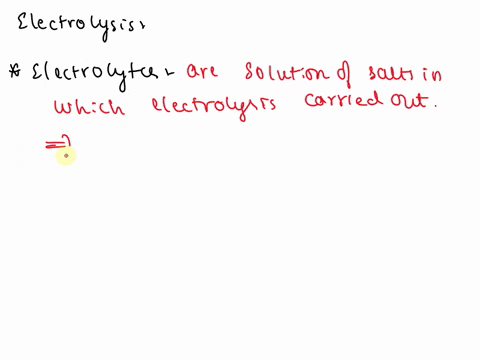 Electrolysis:
* Electrolytes - are solution of salts in
which electrolysis carried out.
⇒